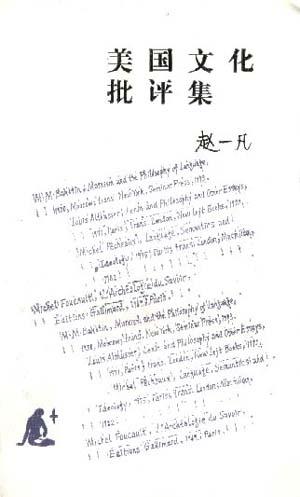 美国文化
批评集
赵一凡
M. M. Bakhtin, Marxism and the Philosophy of Language,
1930, Moscow, trans. New York, Seminar Press, 1973.
Louis Althusser, Lenin and Philosophy and Other Essays,
1971, Paris, Trans. London, New Left Books,
Michel Pecheaux, Language, Semantics and
Ideology, 1975, Paris, trans. London, Macmillan,
1982.
Michel Foucault, L'Archéologie du Savoir.
Éditions Gallimard, Paris.
M. M. Bakhtin, Marxism and the Philosophy of Language,
1930, Moscow, trans. New York, Seminar Press, 1973.
Louis Althusser, Lenin and Philosophy and Other Essays,
1971, Paris, trans. London, New Left Books,
Michel Pecheaux, Language, Semantics and
Ideology, 1975, Paris, Trans. London, Macmillan,
1982.
Michel Foucault, L'Archéologie du Savoir.
Éditions Gallimard, 1969, Paris.